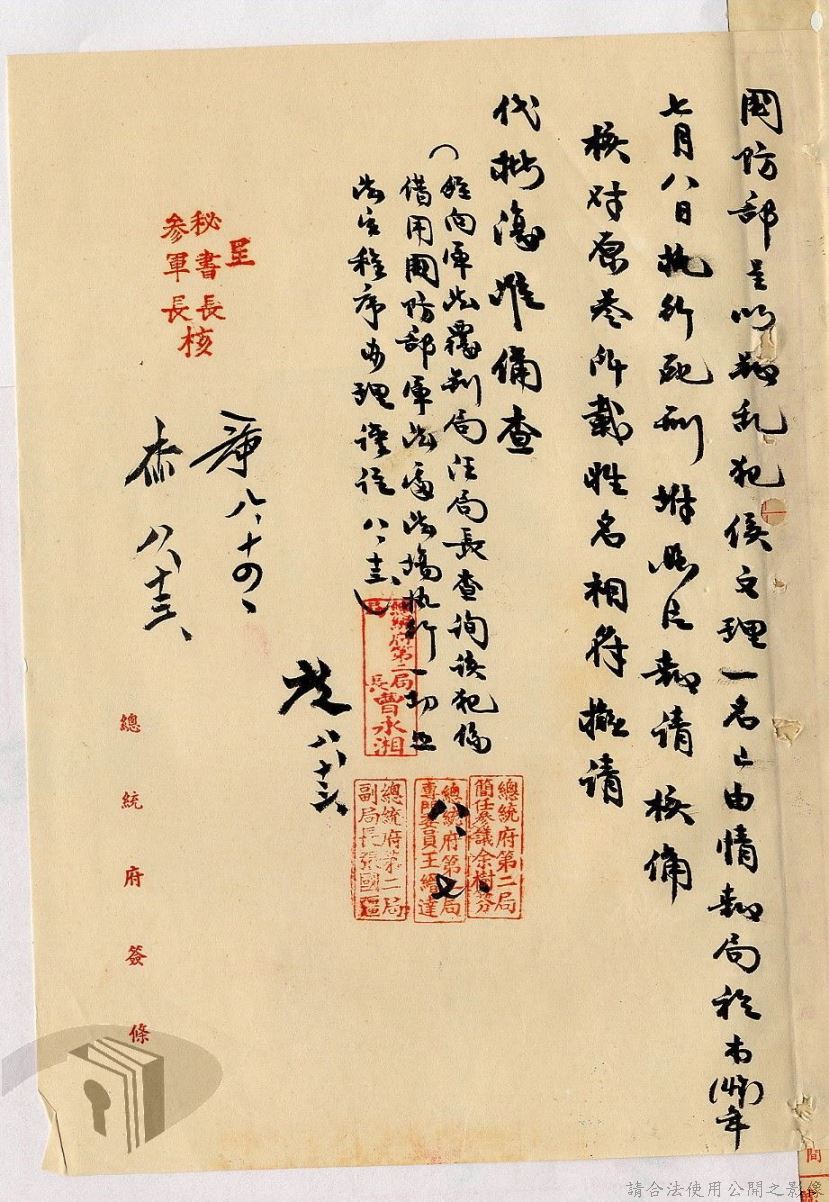 國防部呈以叛乱犯侯文理一名已由情報局於本(48)年
七月八日执行死刑拊照片報请 核備
核对原卷所載姓名相符擬请
代批復准備查
(経向軍法覆判局汪局長查询该犯係
借用國防部軍法局法場执行一切照
法定程序办理謹註八、十三)
呈
秘書長
參軍長核
八、十四、
八、十三、
八、十三、
八、七、
總統府第二局
局長曹永湘
總統府第二局
簡任參議余樹芬
總統府第二局
專門委員王繪達
總統府第二局
副局長張國疆
總統府簽條
間
請合法使用公開之影像